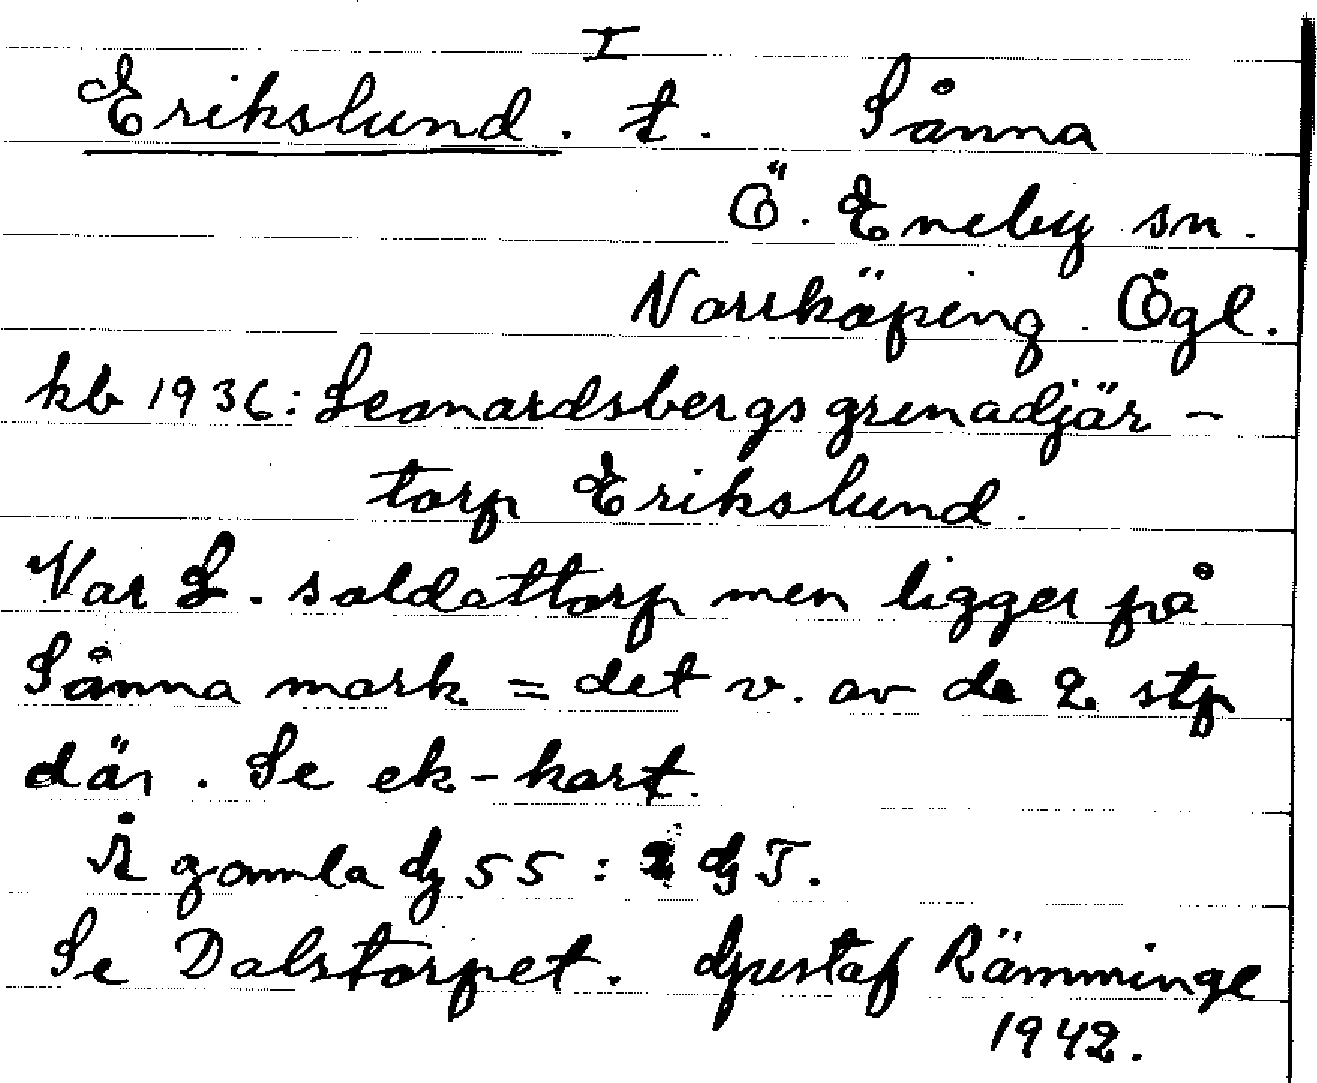 I
Erikslund. t. Sånna
Ö. Eneby sn.
Norrköping. Ögl.
kb 1936: Leonardsbergs grenadjär-
torp Erikslund.
Var L. soldattorp men ligger på
Sånna mark = det v. av de 2 stp
där. Se ek-kart.
Å gamla 55: T.
Se Dalstorpet. Gustaf Rämminge
1942.